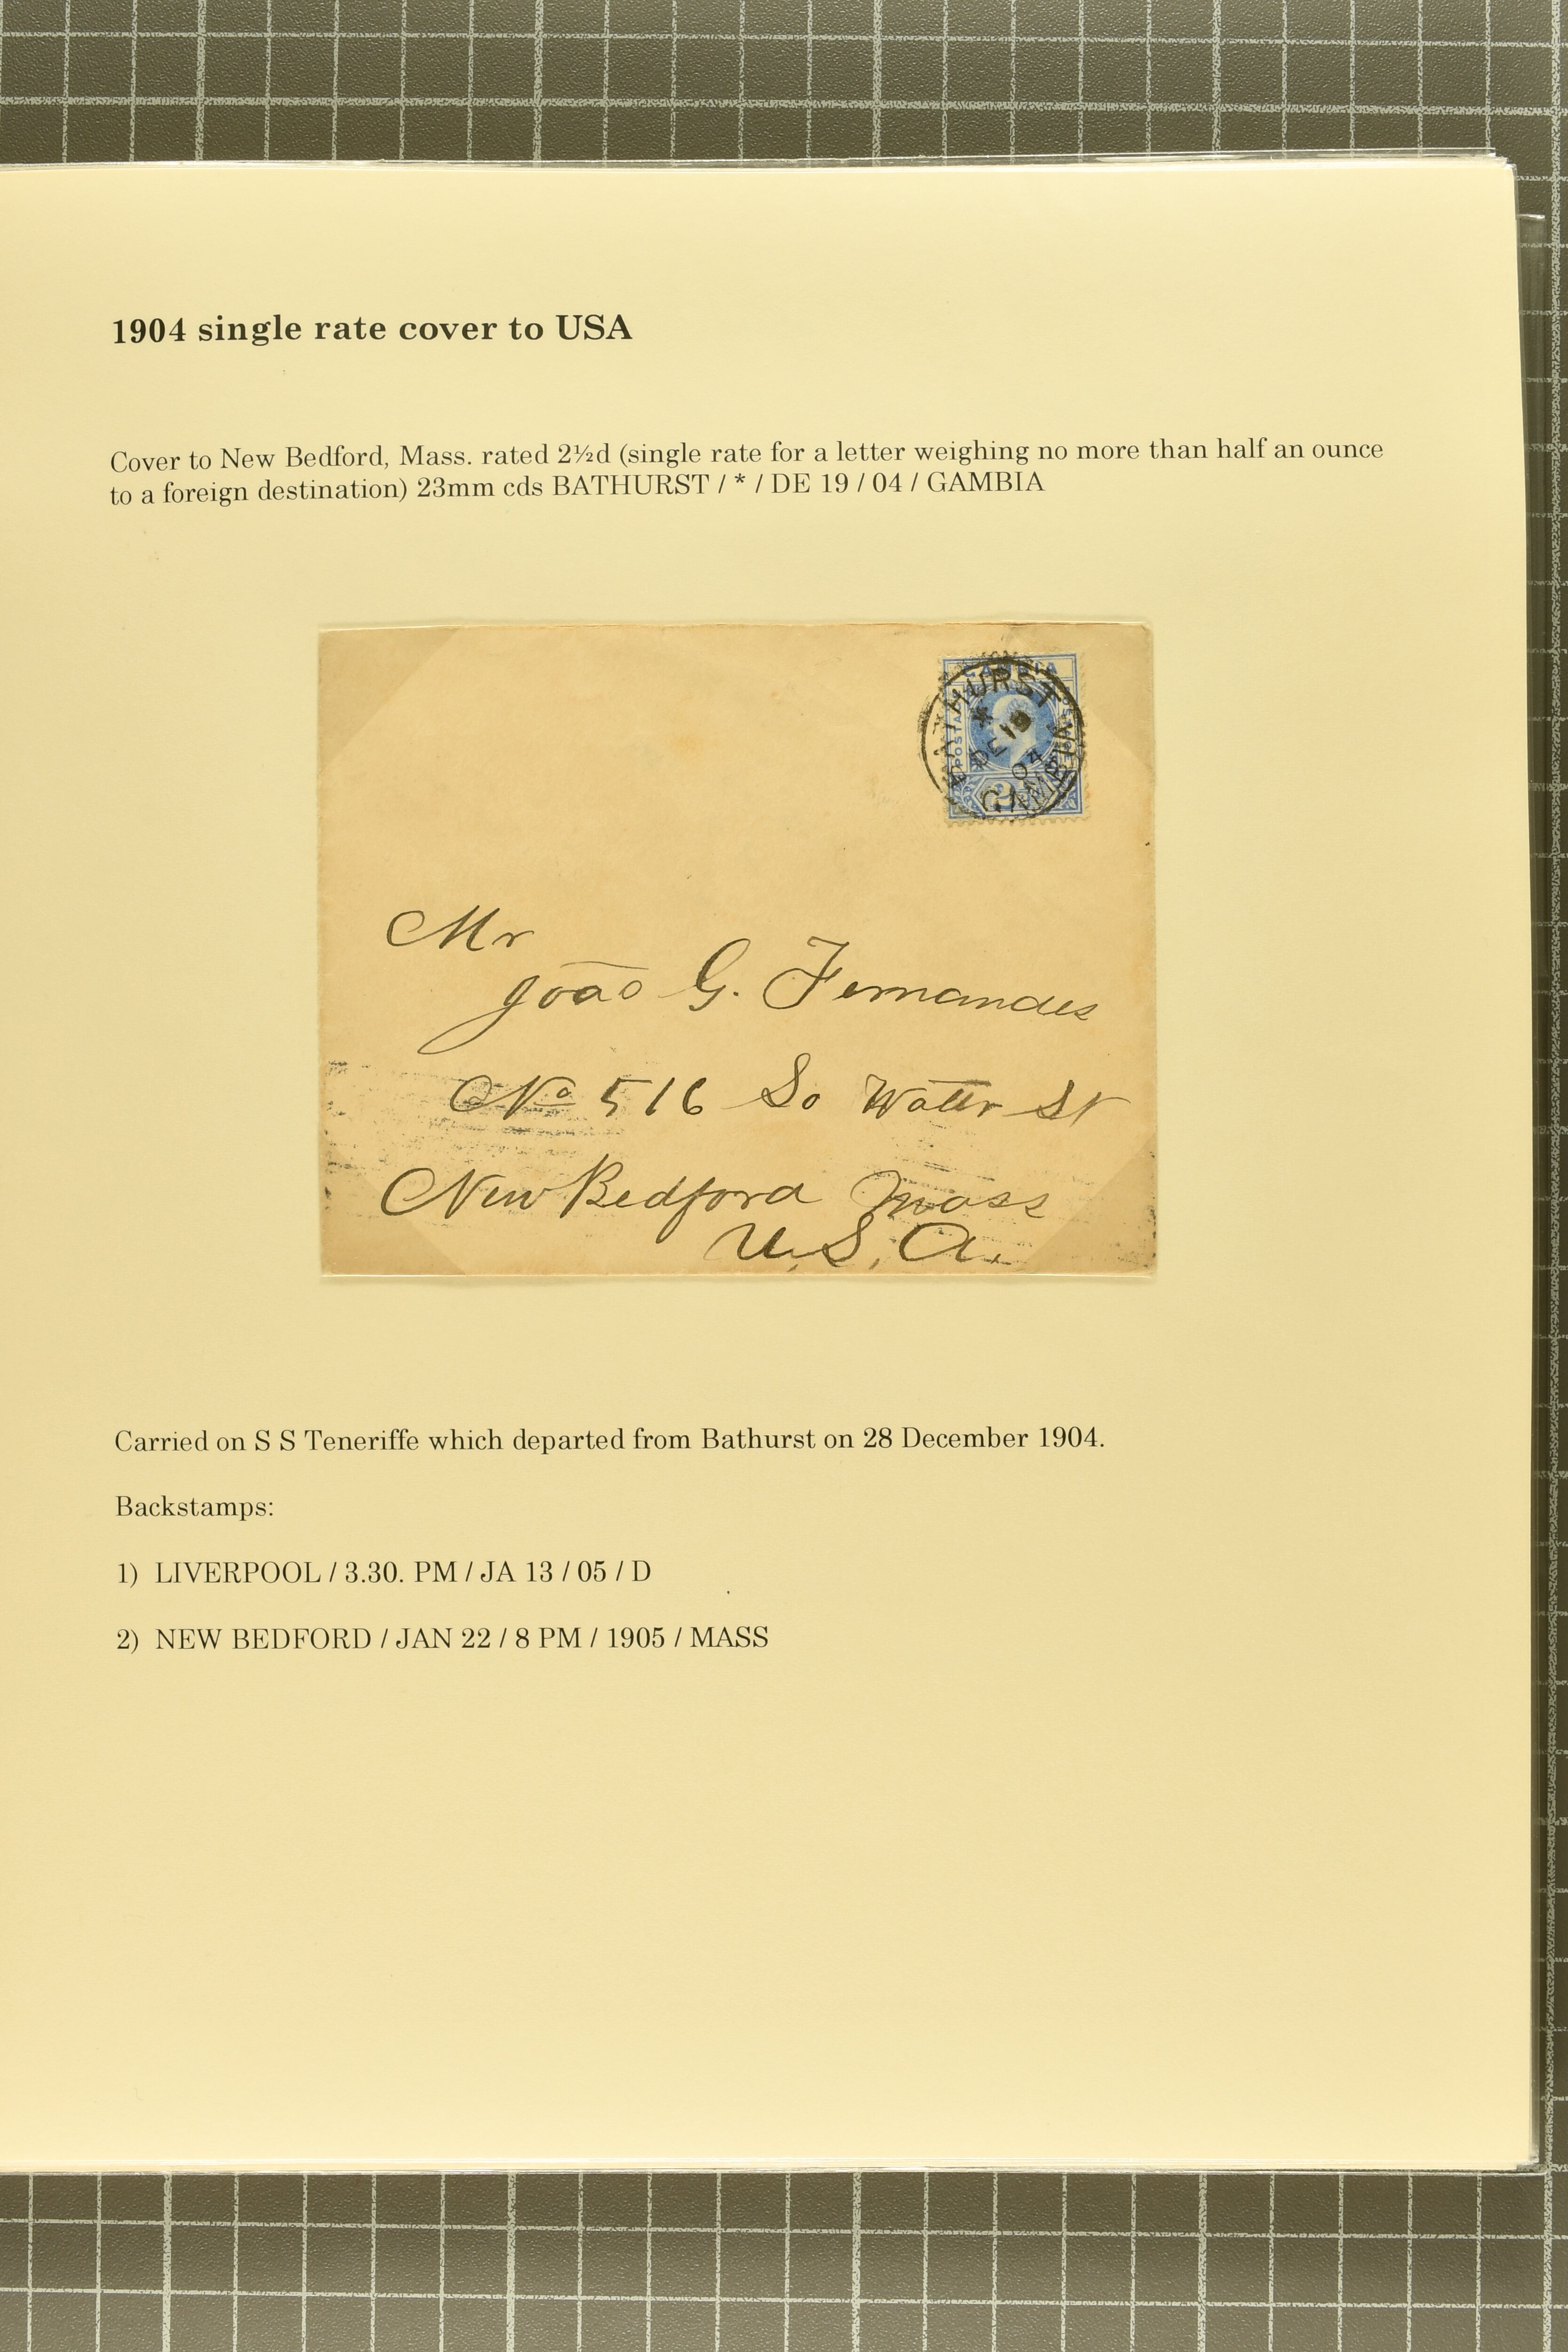 1904 single rate cover to USA
Cover to New Bedford, Mass. rated 2½d (single rate for a letter weighing no more than half an ounce
to a foreign destination) 23mm cds BATHURST / * / DE 19 / 04 / GAMBIA
GAMBIA
BATHURST
*
DE 19
04
GAMBIA
POSTAGE
Mr
João G. Fernandes
No 516 So Water St
New Bedford Mass
U.S.A.
Carried on S S Teneriffe which departed from Bathurst on 28 December 1904.
Backstamps:
1) LIVERPOOL / 3.30. PM / JA 13 / 05 / D
2) NEW BEDFORD / JAN 22 / 8 PM / 1905 / MASS